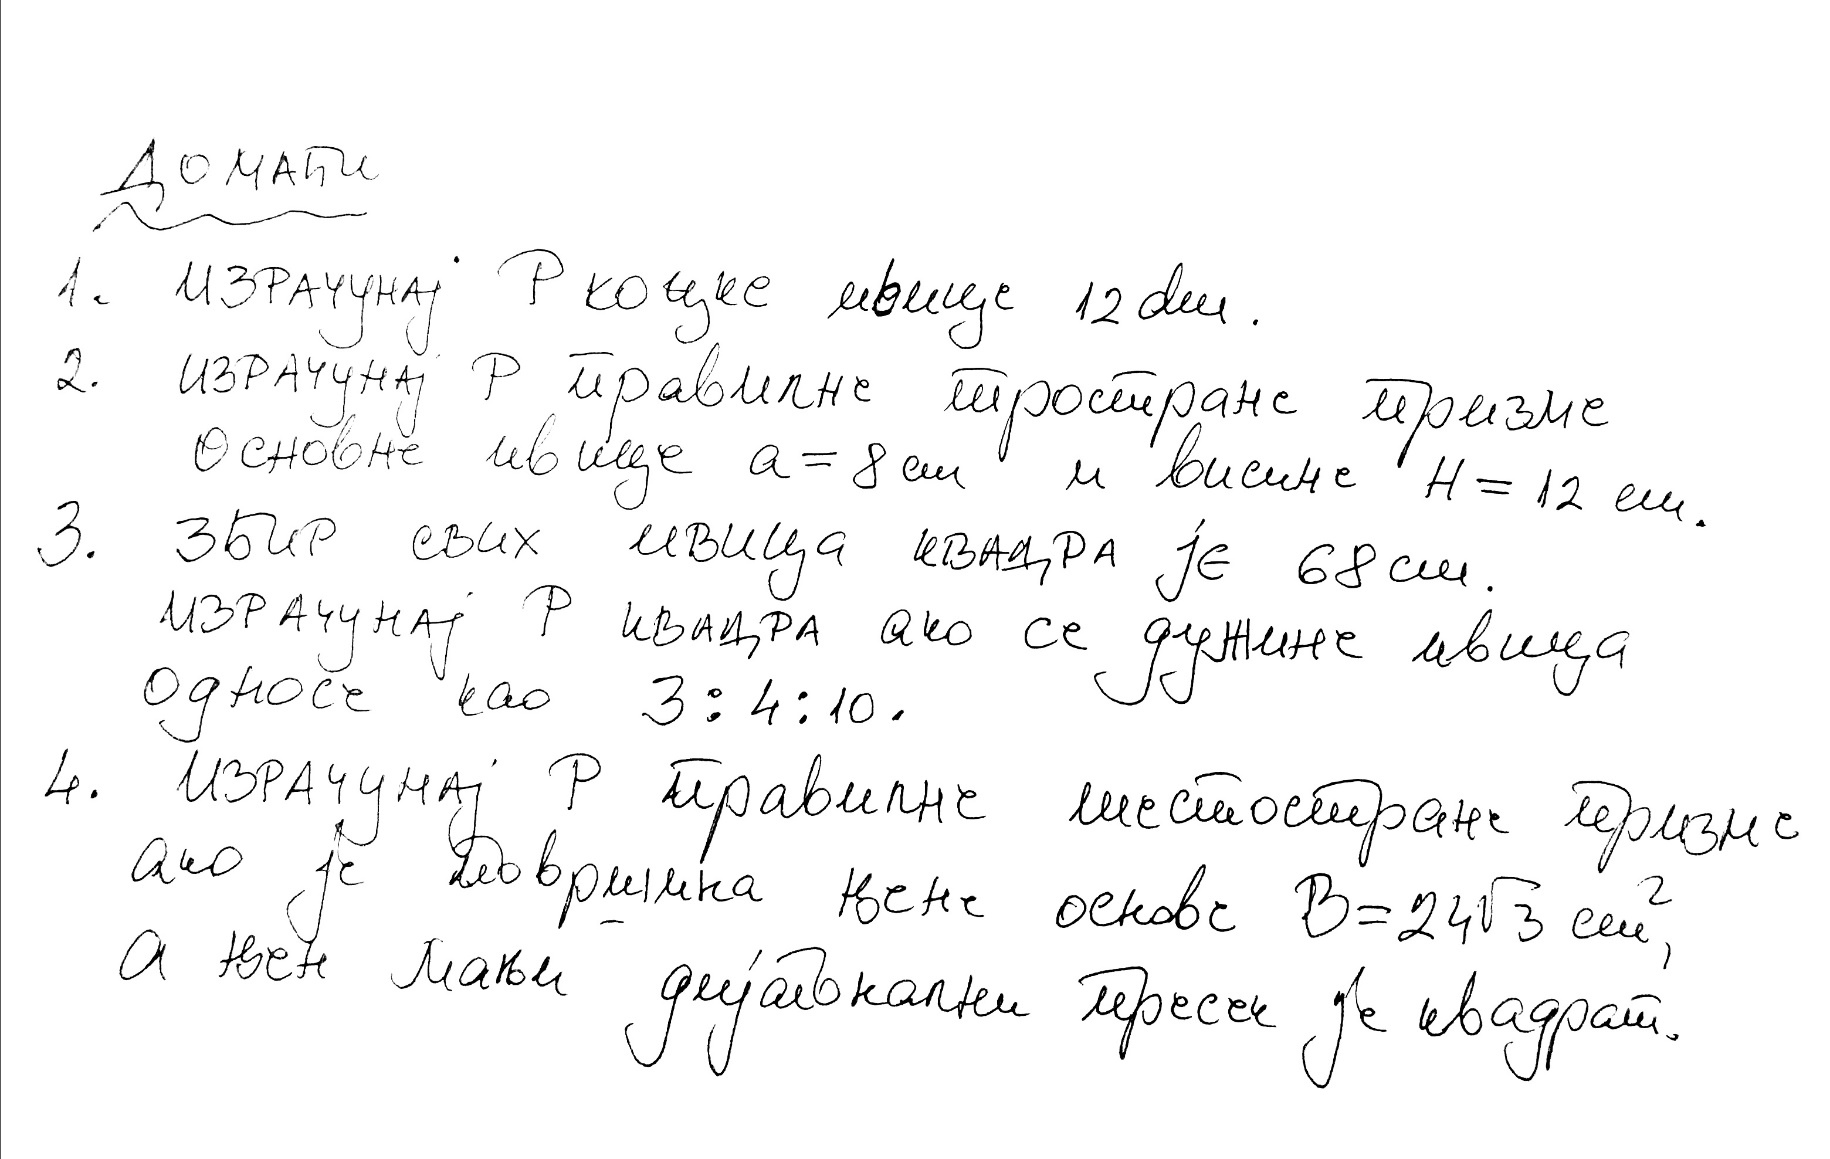 ДОМАЋИ
1. ИЗРАЧУНАЈ P коцке ивице 12 dm.
2. ИЗРАЧУНАЈ P правилне тростране призме
основне ивице a = 8 cm и висине H = 12 cm.
3. ЗБИР свих ивица КВАДРА је 68 cm.
ИЗРАЧУНАЈ P КВАДРА ако се дужине ивица
односе као 3:4:10.
4. ИЗРАЧУНАЈ P правилне шестостране призме
ако је површина њене основе B = 24√3 cm²,
а њен мањи дијагонални пресек је квадрат.